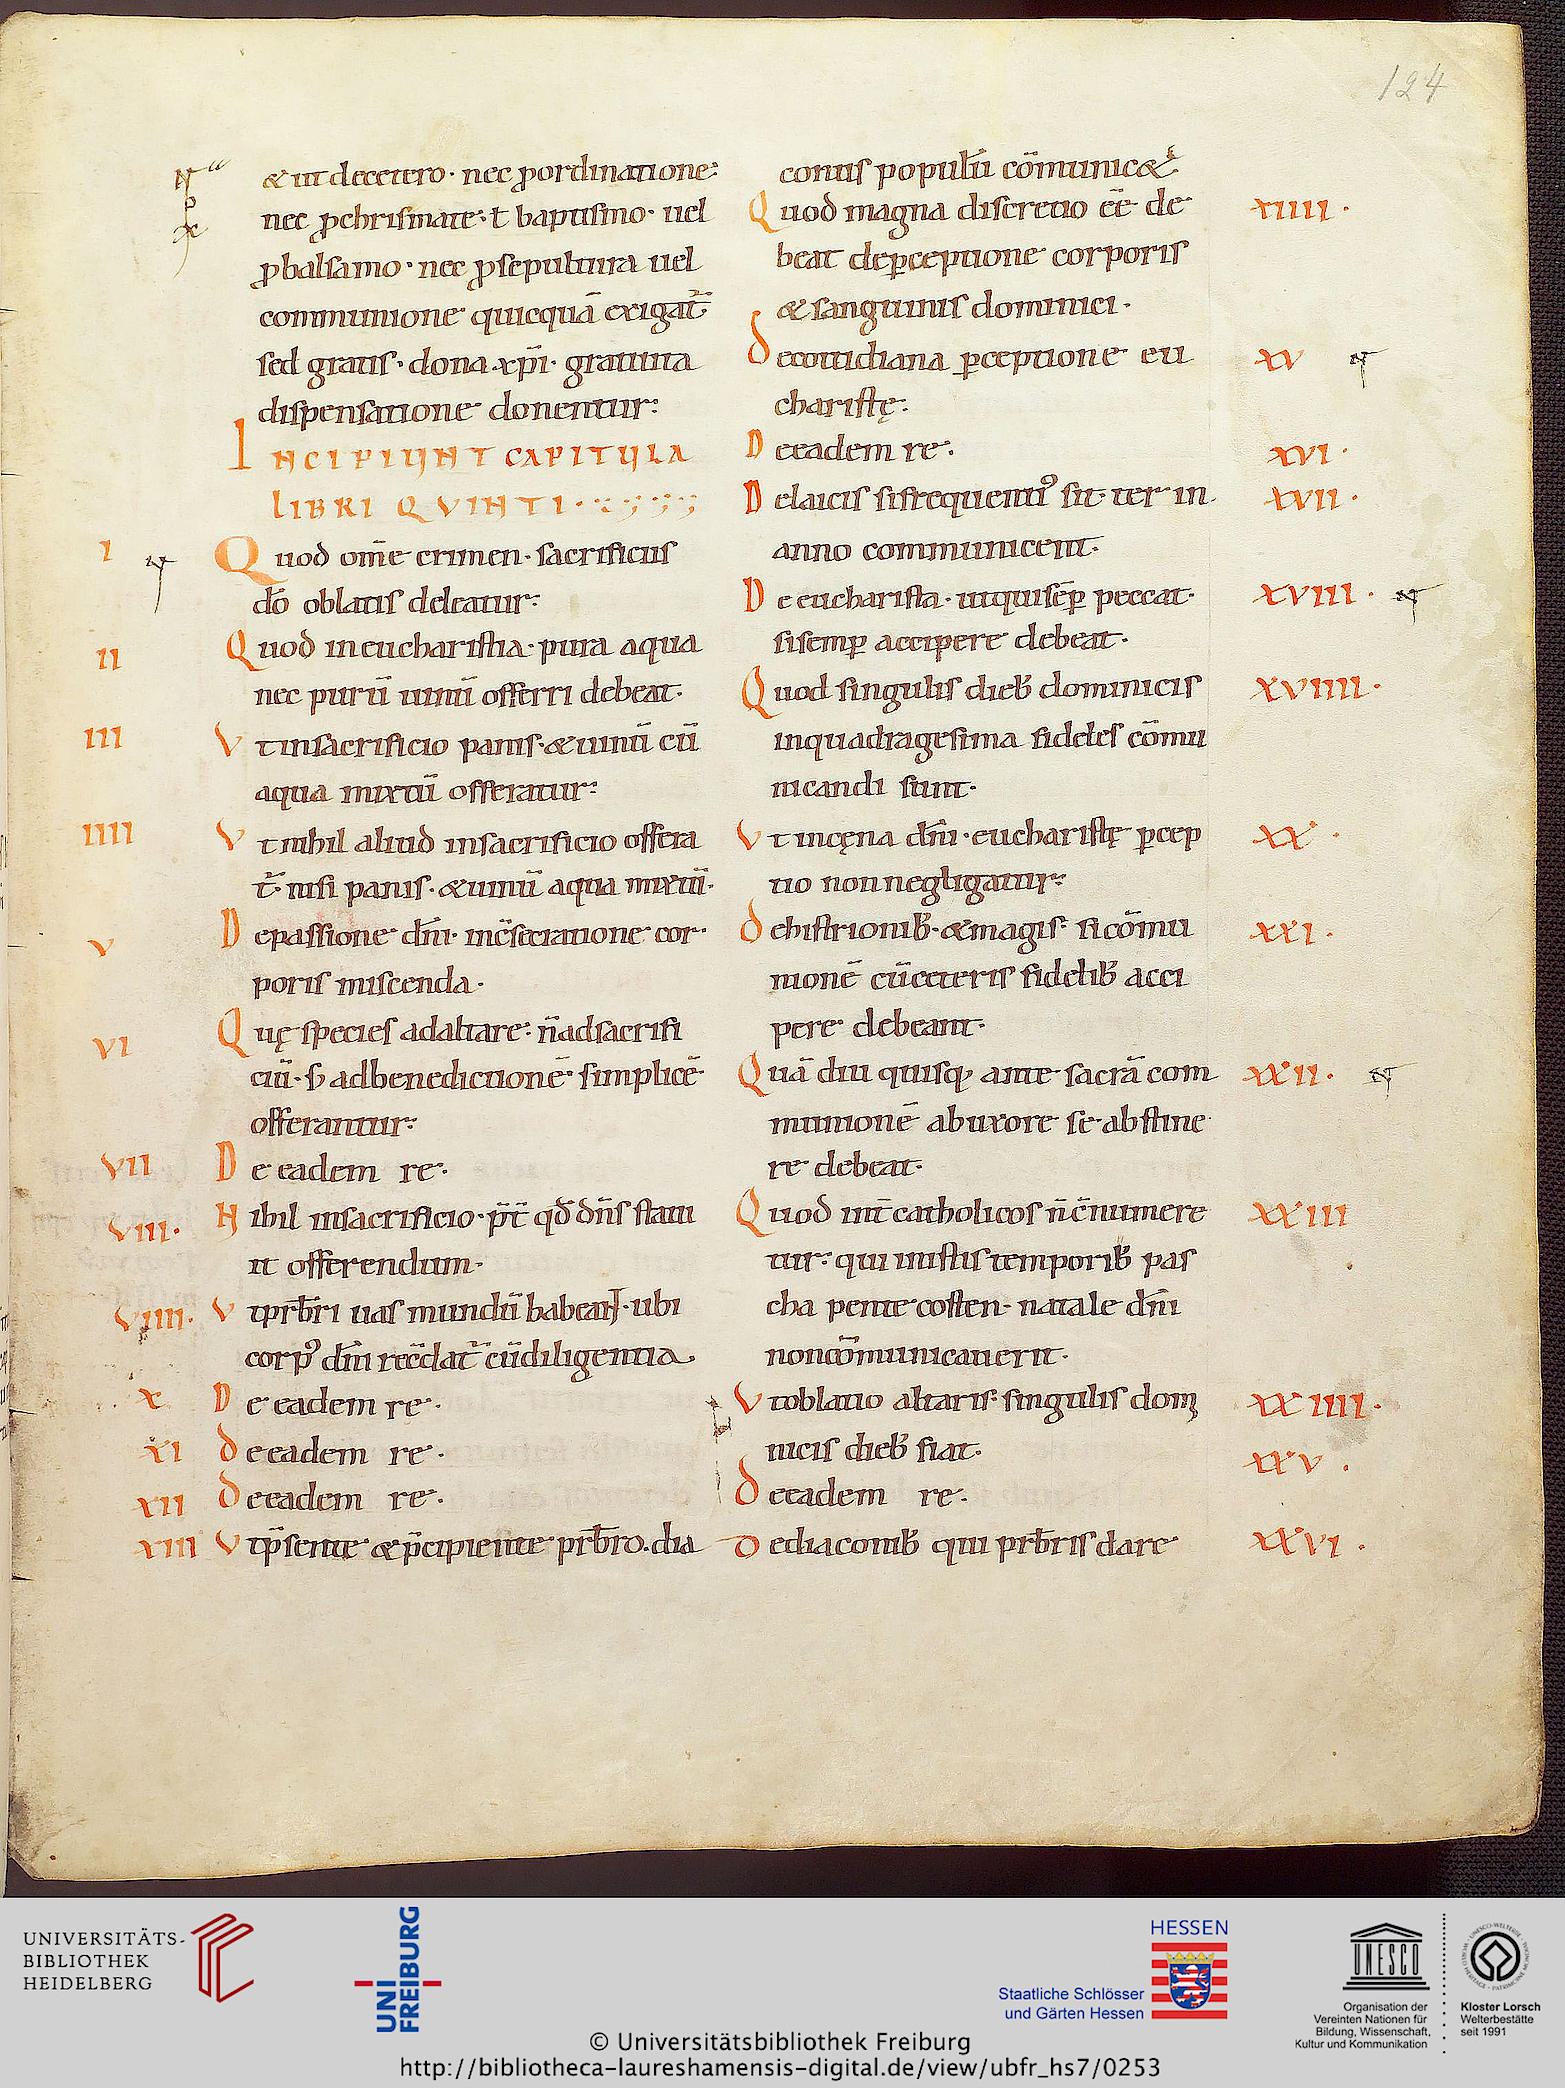 124
& ut decetero· nec p̱ordinatione
nec p̱chrismate· t baptismo· uel
p̱balsamo· nec p̱sepultura uel
communione quicquā exigat̄
sed gratis· dona xp̄i· gratuita
dispensatione donentur:
INCIPIUNT CAPITULA
LIBRI QVINTI·
I
Quod om̄e crimen· sacrificiis
dō oblatis deleatur:
II
Quod ineucharistia· pura aqua
nec purū uinū offerri debeat·
III
Vt insacrificio panis·&uinū cū
aqua mixtū offeratur:
IIII
Vt nihil aliud insacrificio offera
t̄· nisi panis·&uinū aqua mixtū·
V
Depassione dn̄i· inc̄secratione cor·
poris miscenda·
VI
Quę species adaltare: n̄adsacrifi
ciū· s; adbenedictionē simplicē
offerantur:
VII
De eadem re·
VIII·
Nihil insacrificio·p̄t̄ qđ dn̄s statu
it offerendum·
VIIII·
Vtprb̄ri uas mundū habeant·ubi
corp᾽ dn̄i rec̄dat̄ cūdiligentia
X
De eadem re·
XI
Deeadem re·
XII
Deeadem re·
XIII
Vtp̄sente &p̄cipiente prb̄ro·dia
conus populū cōmunic&
Quod magna discretio eē de
XIIII·
beat dep̱ceptione corporis
&sanguinis dominici·
Decottidiana p̱ceptione eu
XV
charistę·
Deeadem re·
XVI·
Delaicis sifrequenti᾽ sit· ter in
XVII·
anno communicent·
De eucharista· utquisēp̱ peccat·
XVIII·
sisemp̱ accipere debeat·
Quod singulis dieb; dominicis
XVIIII·
inquadragesima fideles cōmu
nicandi sunt·
Vt incęna dn̄i·eucharistę p̱cep
XX·
tio nonnegligatur:
Dehistrionib;·&magis· sicōmu
XXI·
nionē cūceteris fidelib; acci
pere debeant·
Quā diu quisq; ante sacrā com
XXII·
munionē abuxore se·abstine
re debeat·
Quod int̄catholicos n̄c̄numere
XXIII
tur: qui inistis temporib; pas
cha pente costen· natale dn̄i
noncōmunicauerit·
Vtoblatio altaris· singulis domi
XXIIII·
nicis dieb; fiat·
Deeadem re·
XXV·
Dediaconib; qui prb̄ris dare
XXVI·
UNIVERSITÄTS-
BIBLIOTHEK
HEIDELBERG
UNI
FREIBURG
HESSEN
Staatliche Schlösser
und Gärten Hessen
UNESCO
Organisation der
Vereinten Nationen für
Bildung, Wissenschaft,
Kultur und Kommunikation
Kloster Lorsch
Welterbestätte
seit 1991
© Universitätsbibliothek Freiburg
http://bibliotheca-laureshamensis-digital.de/view/ubfr_hs7/0253